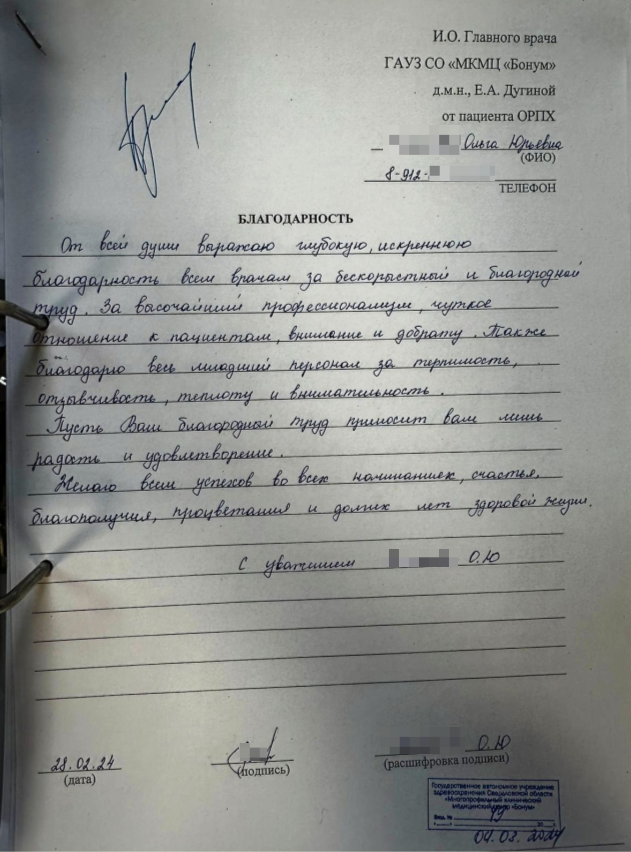 И.О. Главного врача
ГАУЗ СО «МКМЦ «Бонум»
д.м.н., Е.А. Дугиной
от пациента ОРПХ
Ольга Юрьевна
(ФИО)
8-912-
ТЕЛЕФОН
БЛАГОДАРНОСТЬ
От всей души выражаю глубокую, искреннюю
благодарность всем врачам за бескорыстный и благородной
труд. За высочайший профессионализм, чуткое
отношение к пациентам, внимание и доброту. Также
благодарю весь младший персонал за терпимость,
отзывчивость, теплоту и внимательность.
Пусть Ваш благородный труд приносит вам лишь
радость и удовлетворение.
Желаю всем успехов во всех начинаниях, счастья,
благополучия, процветания и долгих лет здоровой жизни.
С уважением О.Ю
28.02.24
(дата)
(подпись)
О.Ю
(расшифровка подписи)
Государственное автономное учреждение
здравоохранения Свердловской области
«Многопрофильный клинический
медицинский центр «Бонум»
Вх. №
04.03.2024